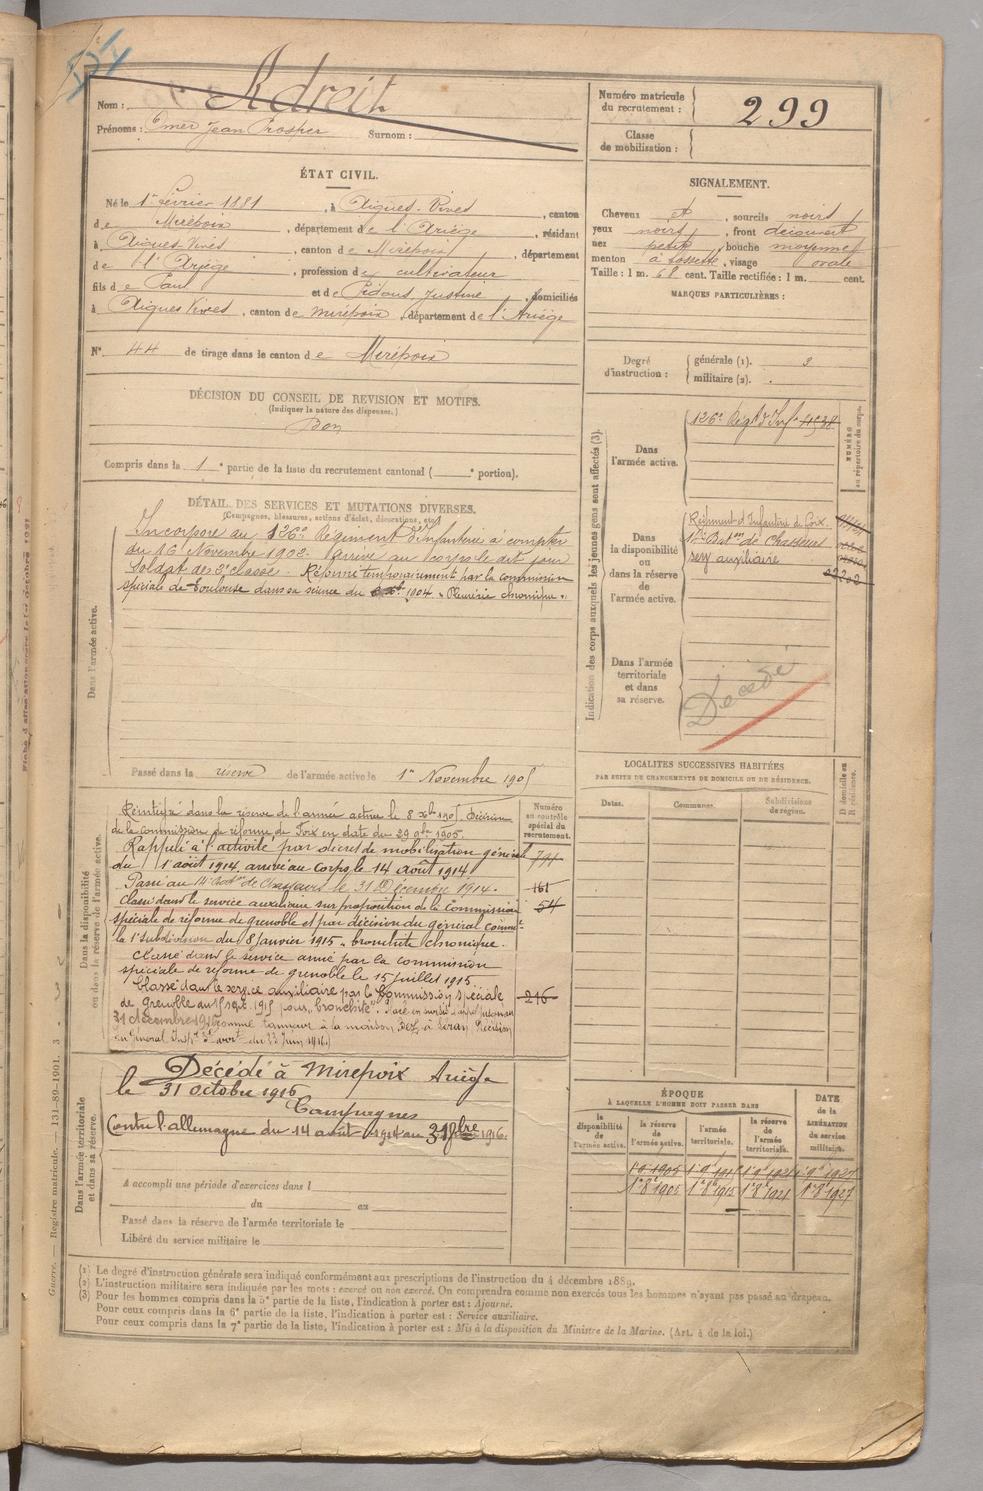 Nom : Adreit
Prénoms : Omer Jean Prosper Surnom :
Numéro matricule du recrutement : 299
Classe de mobilisation :
ÉTAT CIVIL.
Né le 1er Février 1881, à Aigues-Vives, canton
de Mirepoix, département de l'Ariège, résidant
à Aigues-Vives, canton de Mirepoix, département
de l'Ariège, profession de cultivateur
fils de Paul et de Pédoussat Justine, domiciliés
à Aigues Vives, canton de Mirepoix, département de l'Ariège
N° 44 de tirage dans le canton de Mirepoix
SIGNALEMENT.
Cheveux et, sourcils noirs
yeux noirs, front découvert
nez petit, bouche moyenne
menton à fossette, visage ovale
Taille : 1 m. 68 cent. Taille rectifiée : 1 m. cent.
MARQUES PARTICULIÈRES :
Degré d'instruction : générale (1). 3
militaire (2).
DÉCISION DU CONSEIL DE REVISION ET MOTIFS.
(Indiquer la nature des dispenses.)
Bon
Compris dans la 1e partie de la liste du recrutement cantonal ( e portion).
DÉTAIL DES SERVICES ET MUTATIONS DIVERSES.
(Campagnes, blessures, actions d'éclat, décorations, etc.)
Dans l'armée active.
Incorporé au 126e Régiment d'infanterie à compter
du 16 Novembre 1902. Arrivé au corps le dit jour
Soldat de 2e classe. Réformé temporairement par la commission
spéciale de Toulouse dans sa séance du 1904 « Pleurésie chronique ».
Passé dans la réserve de l'armée active le 1er Novembre 1905
Indication des corps auxquels les jeunes gens sont affectés (3).
NUMÉRO au répertoire du corps.
Dans l'armée active.
126e Régt d'Inf.
Dans la disponibilité ou dans la réserve de l'armée active.
Régiment d'Infanterie de Foix.
14e Baton de Chasseurs
serv auxiliaire
Dans l'armée territoriale et dans sa réserve.
Décédé
Dans la disponibilité ou dans la réserve de l'armée active.
Numéro au contrôle spécial du recrutement.
Réintégré dans la réserve de l'armée active le 8 Xbre 1905. Décision
de la commission de réforme de Foix en date du 29 9bre 1905.
Rappelé à l'activité par décret de mobilisation générale
du 1 août 1914. arrivé au corps le 14 août 1914
Passé au 14e Baton de Chasseurs le 31 Décembre 1914.
Classé dans le service auxiliaire sur proposition de la Commission
spéciale de réforme de grenoble et par décision du général Commt
la 1e subdivision du 8 Janvier 1915 « bronchite chronique ».
Classé dans le service armé par la commission
spéciale de réforme de grenoble le 15 juillet 1915.
Classé dans le service auxiliaire par la Commission spéciale
de Grenoble du sept. 1915 pour « bronchite ».
31 décembre 1916 comme tanneur à la maison
du 23 Juin 1916
161
54
216
LOCALITES SUCCESSIVES HABITÉES
PAR SUITE DE CHANGEMENTS DE DOMICILE OU DE RÉSIDENCE.
Dates.
Communes.
Subdivisions de région.
D domicile ou R résidence.
Dans l'armée territoriale et dans sa réserve.
Décédé à Mirepoix Ariège
le 31 octobre 1916
Campagnes
Contre l'allemagne du 14 août 1914 au 31 8bre 1916.
A accompli une période d'exercices dans l
du au
Passé dans la réserve de l'armée territoriale le
Libéré du service militaire le
ÉPOQUE
À LAQUELLE L'HOMME DOIT PASSER DANS
la disponibilité de l'armée active.
la réserve de l'armée active.
l'armée territoriale.
la réserve de l'armée territoriale.
DATE de la LIBÉRATION du service militaire.
1er 8e 1905 1er 8e 1915 1er 8e 1921 1er 8e 1927
(1) Le degré d'instruction générale sera indiqué conformément aux prescriptions de l'instruction du 4 décembre 1889.
(2) L'instruction militaire sera indiquée par les mots : exercé ou non exercé. On comprendra comme non exercés tous les hommes n'ayant pas passé au drapeau.
(3) Pour les hommes compris dans la 5e partie de la liste, l'indication à porter est : Ajourné.
Pour ceux compris dans la 6e partie de la liste, l'indication à porter est : Service auxiliaire.
Pour ceux compris dans la 7e partie de la liste, l'indication à porter est : Mis à la disposition du Ministre de la Marine. (Art. 4 de la loi.)
Guerre. — Registre matricule. — 131-89-1901.